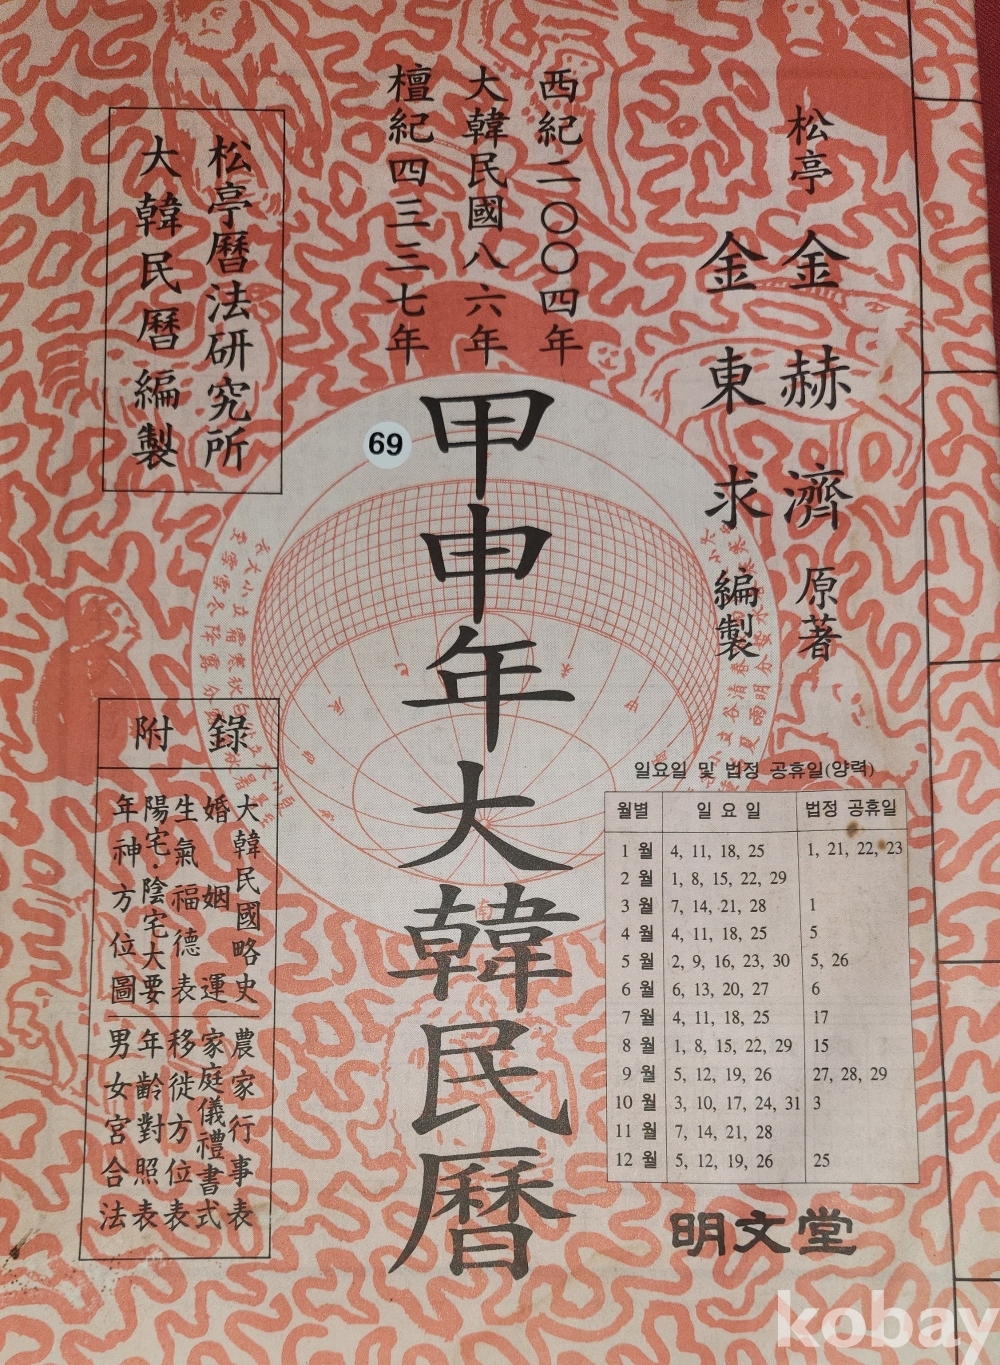 松亭 金赫濟 原著
金東求 編製
西紀二〇〇四年
大韓民國八六年
檀紀四三三七年
松亭曆法研究所
大韓民曆編製
69
甲申年大韓民曆
附錄
大韓民國略史
婚姻運
生氣福德表
陽宅·陰宅大要
年神方位圖
農家行事表
家庭儀禮書式
移徙方位表
年齡對照表
男女宮合法
일요일 및 법정 공휴일(양력)
월별 일요일 법정 공휴일
1월 4, 11, 18, 25 1, 21, 22, 23
2월 1, 8, 15, 22, 29
3월 7, 14, 21, 28 1
4월 4, 11, 18, 25 5
5월 2, 9, 16, 23, 30 5, 26
6월 6, 13, 20, 27 6
7월 4, 11, 18, 25 17
8월 1, 8, 15, 22, 29 15
9월 5, 12, 19, 26 27, 28, 29
10월 3, 10, 17, 24, 31 3
11월 7, 14, 21, 28
12월 5, 12, 19, 26 25
明文堂
南
kobay